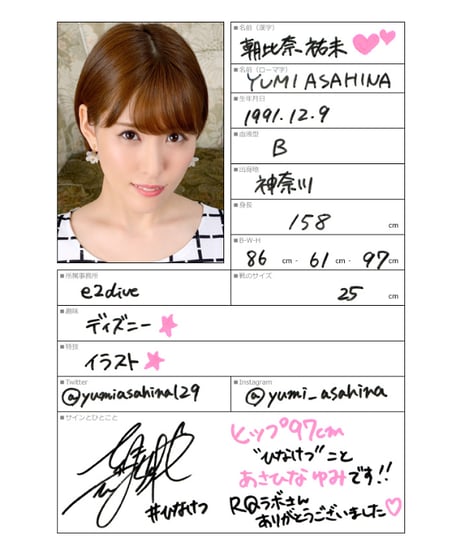 ■名前（漢字）
朝比奈祐未
■名前（ローマ字）
YUMI ASAHINA
■生年月日
1991.12.9
■血液型
B
■出身地
神奈川
■身長
158 cm
■B-W-H
86 cm - 61 cm - 97 cm
■所属事務所
e2dive
■靴のサイズ
25 cm
■趣味
ディズニー
■特技
イラスト
■Twitter
@yumiasahina129
■Instagram
@yumi_asahina
■サインとひとこと
#ひなけつ
ヒップ97cm
"ひなけつ"こと
あさひなゆみです!!
RQラボさん
ありがとうございました♡